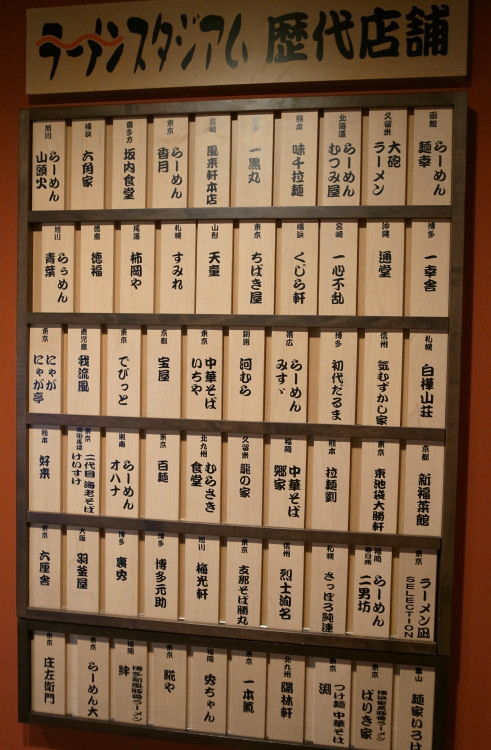 ラーメンスタジアム 歴代店舗
函館 らーめん 麺幸
久留米 大砲ラーメン
北海道 らーめん むつみ屋
熊本 味千拉麺
一黒丸
宮崎 風来軒本店
東京 らーめん 香月
喜多方 坂内食堂
横浜 六角家
旭川 らーめん 山頭火
博多 一幸舎
沖縄 通堂
宮崎 一心不乱
横浜 くじら軒
東京 ちばき屋
山形 天童
札幌 すみれ
尾道 柿岡や
徳島 徳福
旭川 らぅめん 青葉
札幌 白樺山荘
信州 気むずかし家
博多 初代だるま
帯広 らーめん みすゞ
別府 河むら
東京 中華そば いちや
京都 宝屋
東京 でびっと
鹿児島 我流風
東京 にゃがにゃが亭
京都 新福菜館
東京 東池袋大勝軒
熊本 拉麺劉
福岡 中華そば 郷家
久留米 龍の家
北九州 むらさき食堂
東京 百麺
湘南 らーめん オハナ
東京 高田馬場 二代目 海老そば けいすけ
熊本 好来
東京 ラーメン凪 SELECTION
福岡 春日原 らーめん 二男坊
札幌 さっぽろ純連
信州 烈士洵名
東京 支那そば勝丸
旭川 梅光軒
博多 博多元助
博多 廣秀
大阪 羽釜屋
東京 六厘舎
富山 麺家いろは
東京 ばりき家
東京 つけ麺 中華そば 渕
北九州 陽林軒
東京 一本氣
福岡 秀ちゃん
東京 糀や
福岡 博多新風豚骨ラーメン 絆
東京 らーめん大
東京 庄左衛門